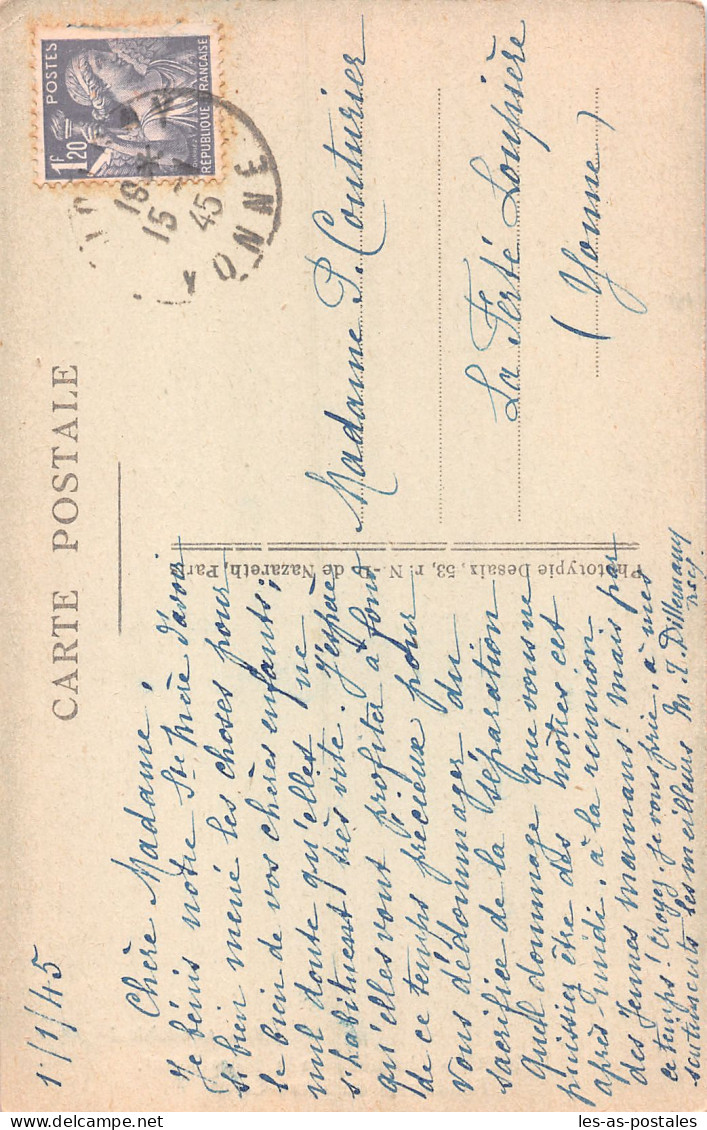 CARTE POSTALE
1/1/45
Chère Madame,
Je bénis notre Ste Mère d'avoir
si bien mené les choses pour
le bien de vos chères enfants;
nul doute qu'elles ne
s'habituent très vite. J'espère
qu'elles vont profiter à fond
de ce temps précieux pour
vous dédommager du
sacrifice de la séparation
Quel dommage que vous ne
puissiez être des nôtres cet
après midi, à la réunion
des Jeunes mamans! mais par
ce temps! Croyez, je vous prie, à mes
sentiments les meilleurs M. T. Dillemann
Phototypie Desaix, 53, r. N.-D. de Nazareth, Paris
POSTES
1F,20
RÉPUBLIQUE FRANÇAISE
18
15 -
45
YONNE
Madame P. Couturier
La Ferté Loupière
(Yonne)
les-as-postales